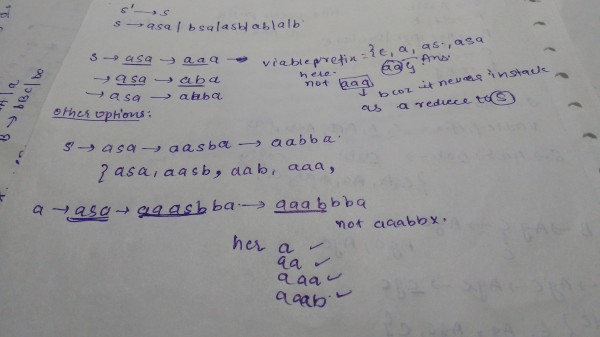 s' → s
s → asa / bsa/asb/ab/a/b.
s → asa → aaa → viable prefix = {ε, a, as, asa
→ asa → aba here. aa} Ans.
→ asa → abba not aaa bcoz it never in stack
as a reduce to S
Other options:
s → asa → aasba → aabba.
{asa, aasb, aab, aaa,
a → asa → aaasbba → aaabbba
not aaabbx.
her a ✓
aa ✓
aaa ✓
aaab ✓
B → bBc/b